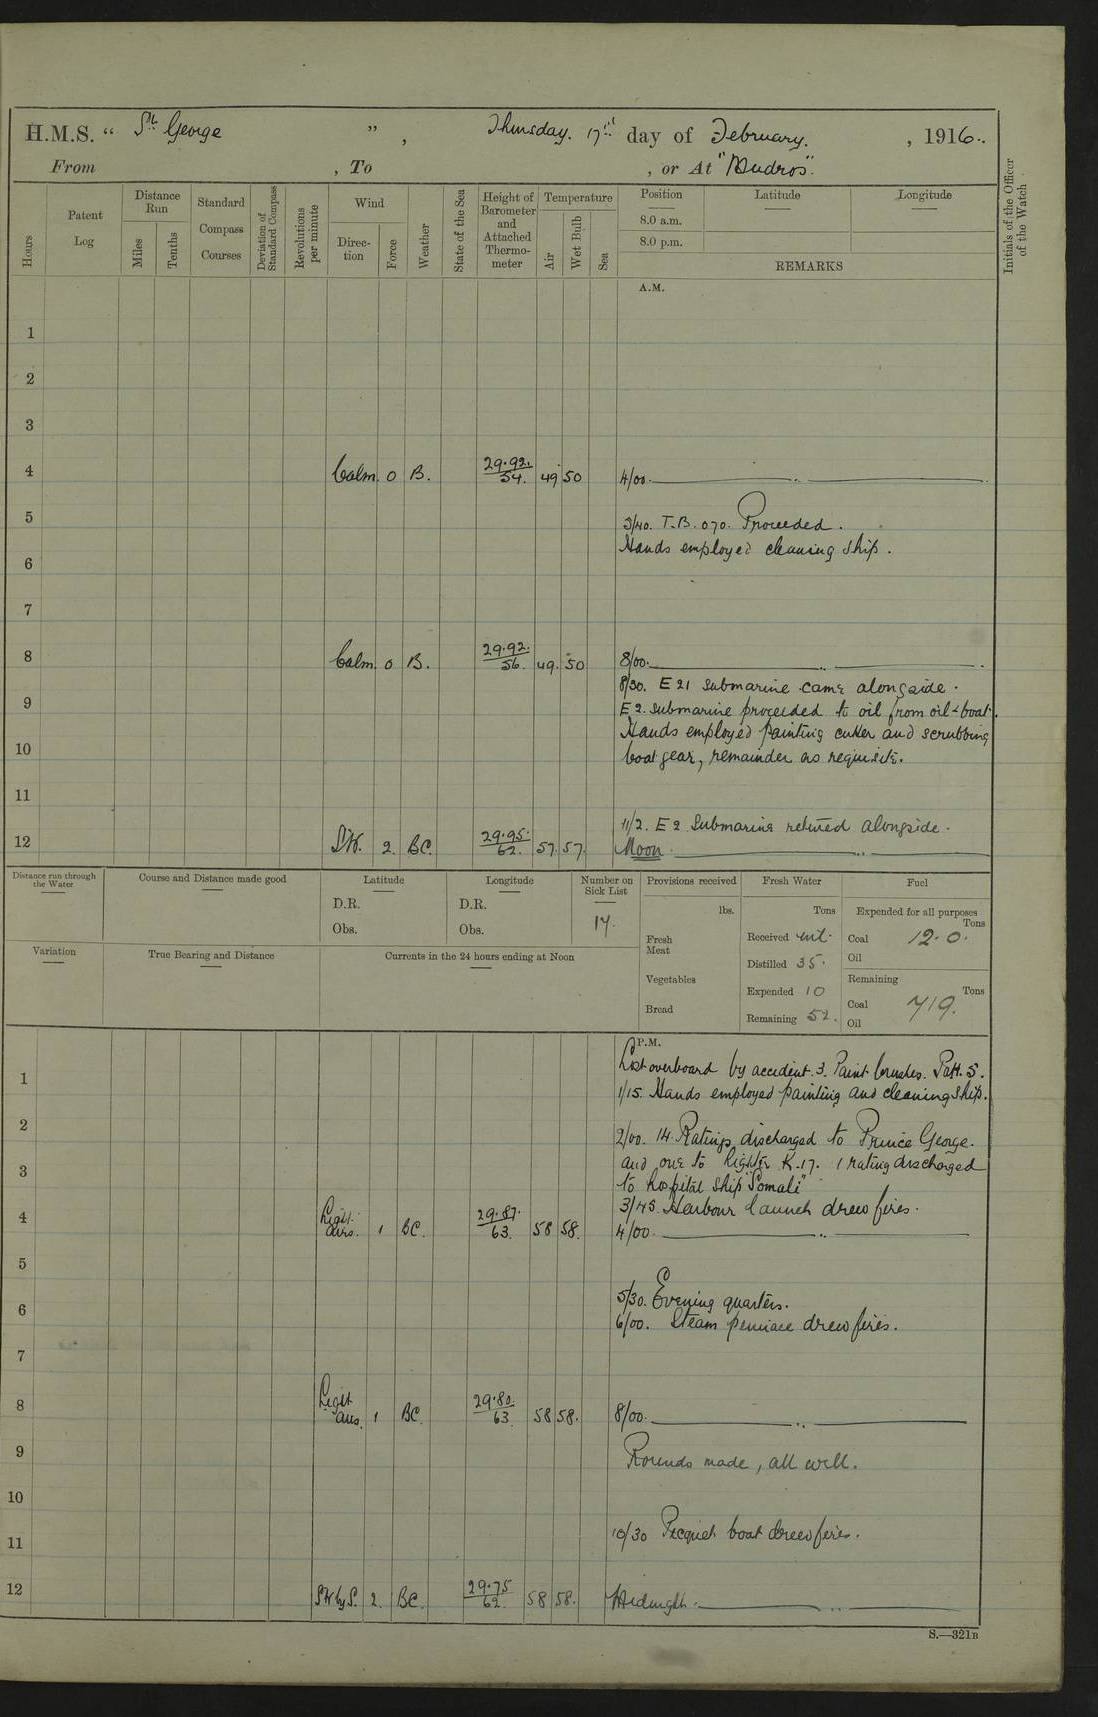 H.M.S. “ St. George ” , Thursday. 17th day of February. , 1916.
From , To , or At "Mudros".
Hours
Patent Log
Distance Run
Miles
Tenths
Standard Compass Courses
Deviation of Standard Compass
Revolutions per minute
Wind
Direc-tion
Force
Weather
State of the Sea
Height of Barometer and Attached Thermo-meter
Temperature
Air
Wet Bulb
Sea
Position
Latitude
Longitude
8.0 a.m.
8.0 p.m.
REMARKS
Initials of the Officer of the Watch
A.M.
1
2
3
4 Calm. 0 B. 29.92. 54. 49 50 4/00.
5
T.B. 070. Proceeded.
Hands employed cleaning ship.
6
7
8 Calm. 0 B. 29.92. 56. 49. 50 8/00.
8/30. E 21 Submarine came alongside.
9
E 2. Submarine proceeded to oil from oil-boat.
Hands employed painting cutter and scrubbing
10
boat gear, remainder as requisite.
11
11/2. E 2 Submarine returned alongside.
12 SW. 2. BC. 29.95. 62. 57. 57. Noon
Distance run through the Water
Course and Distance made good
Latitude
D.R.
Obs.
Longitude
D.R.
Obs.
Number on Sick List
14.
Provisions received
lbs.
Fresh Meat
Vegetables
Bread
Fresh Water
Tons
Received nil.
Distilled 35.
Expended 10
Remaining 52.
Fuel
Expended for all purposes
Tons
Coal 12.0.
Oil
Remaining
Tons
Coal 719.
Oil
Variation
True Bearing and Distance
Currents in the 24 hours ending at Noon
P.M.
Lost overboard by accident. 3. Paint brushes. Patt. 5.
1
1/15. Hands employed painting and cleaning ship.
2
2/00. 14. Ratings discharged to Prince George.
3
and one to Lighter K.17. 1 rating discharged
to hospital ship "Somali"
3/45. Harbour launch drew fires.
4 Light airs. 1 BC. 29.87. 63. 58 58. 4/00.
5
5/30. Evening quarters.
6
6/00. Steam pinnace drew fires.
7
8 Light airs. 1 BC. 29.80. 63 58 58. 8/00.
9
Rounds made, all well.
10
10/30 Picquet boat drew fires.
11
12 SW by S. 2. BC. 29.75 62. 58 58. Midnight.
S.—321B